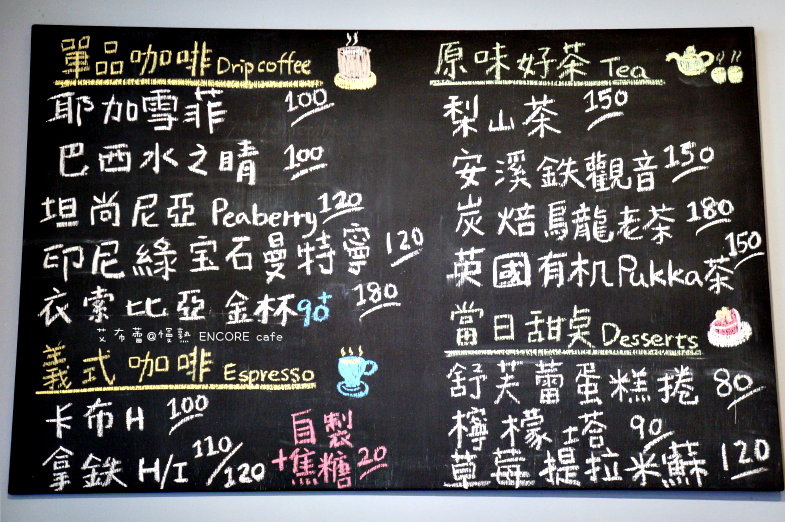 單品咖啡 Drip coffee
耶加雪菲 100
巴西水之晴 100
坦尚尼亞 Peaberry 120
印尼綠宝石曼特寧 120
衣索比亞 金杯90+ 180
艾布蕾@慢熟 ENCORE cafe
義式咖啡 Espresso
卡布H 100
拿鉄 H/I 110/120
自製
+焦糖 20
原味好茶 Tea
梨山茶 150
安溪鉄觀音 150
炭焙烏龍老茶 180
英國有机Pukka茶 150
當日甜点 Desserts
舒芙蕾蛋糕捲 80
檸檬塔 90
草莓提拉米蘇 120